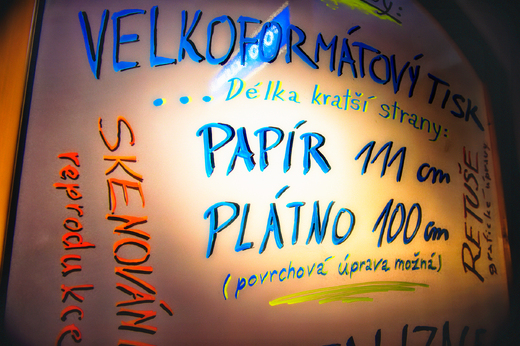 VELKOFORMÁTOVÝ TISK
... Délka kratší strany:
PAPÍR 111 cm
PLÁTNO 100 cm
(povrchová úprava možná)
SKENOVÁNÍ
reprodukce
RETUŠE
grafické úpravy